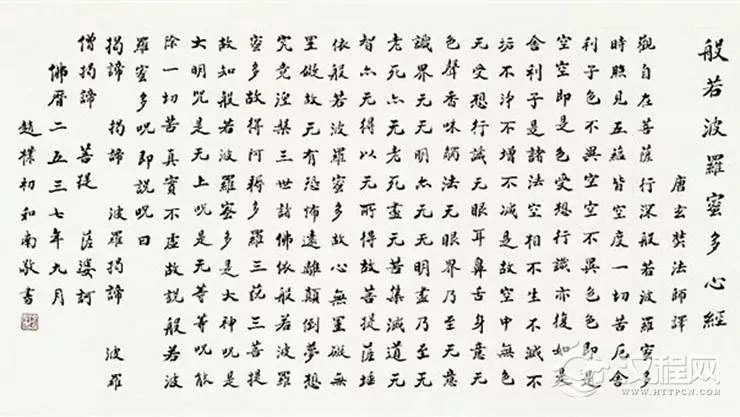 般若波羅蜜多心經
唐玄奘法師譯
觀自在菩薩行深般若波羅蜜多
時照見五蘊皆空度一切苦厄舍
利子色不異空空不異色色即是
空空即是色受想行識亦復如是
舍利子是諸法空相不生不滅不
垢不淨不增不減是故空中無色
无受想行識无眼耳鼻舌身意无
色聲香味觸法无眼界乃至无意
識界无无明亦无无明盡乃至无
老死亦无老死盡无苦集滅道无
智亦无得以无所得故菩提薩埵
依般若波羅蜜多故心無罣礙無
罣礙故无有恐怖遠離顛倒夢想
究竟涅槃三世諸佛依般若波羅
蜜多故得阿耨多羅三藐三菩提
故知般若波羅蜜多是大神咒是
大明咒是无上咒是无等等咒能
除一切苦真實不虛故說般若波
羅蜜多咒即說咒曰
揭諦 揭諦 波羅揭諦 波羅
僧揭諦 菩提 薩婆訶
佛曆二五三七年九月
趙樸初和南敬書
汉程网
WWW.HTTPCN.COM